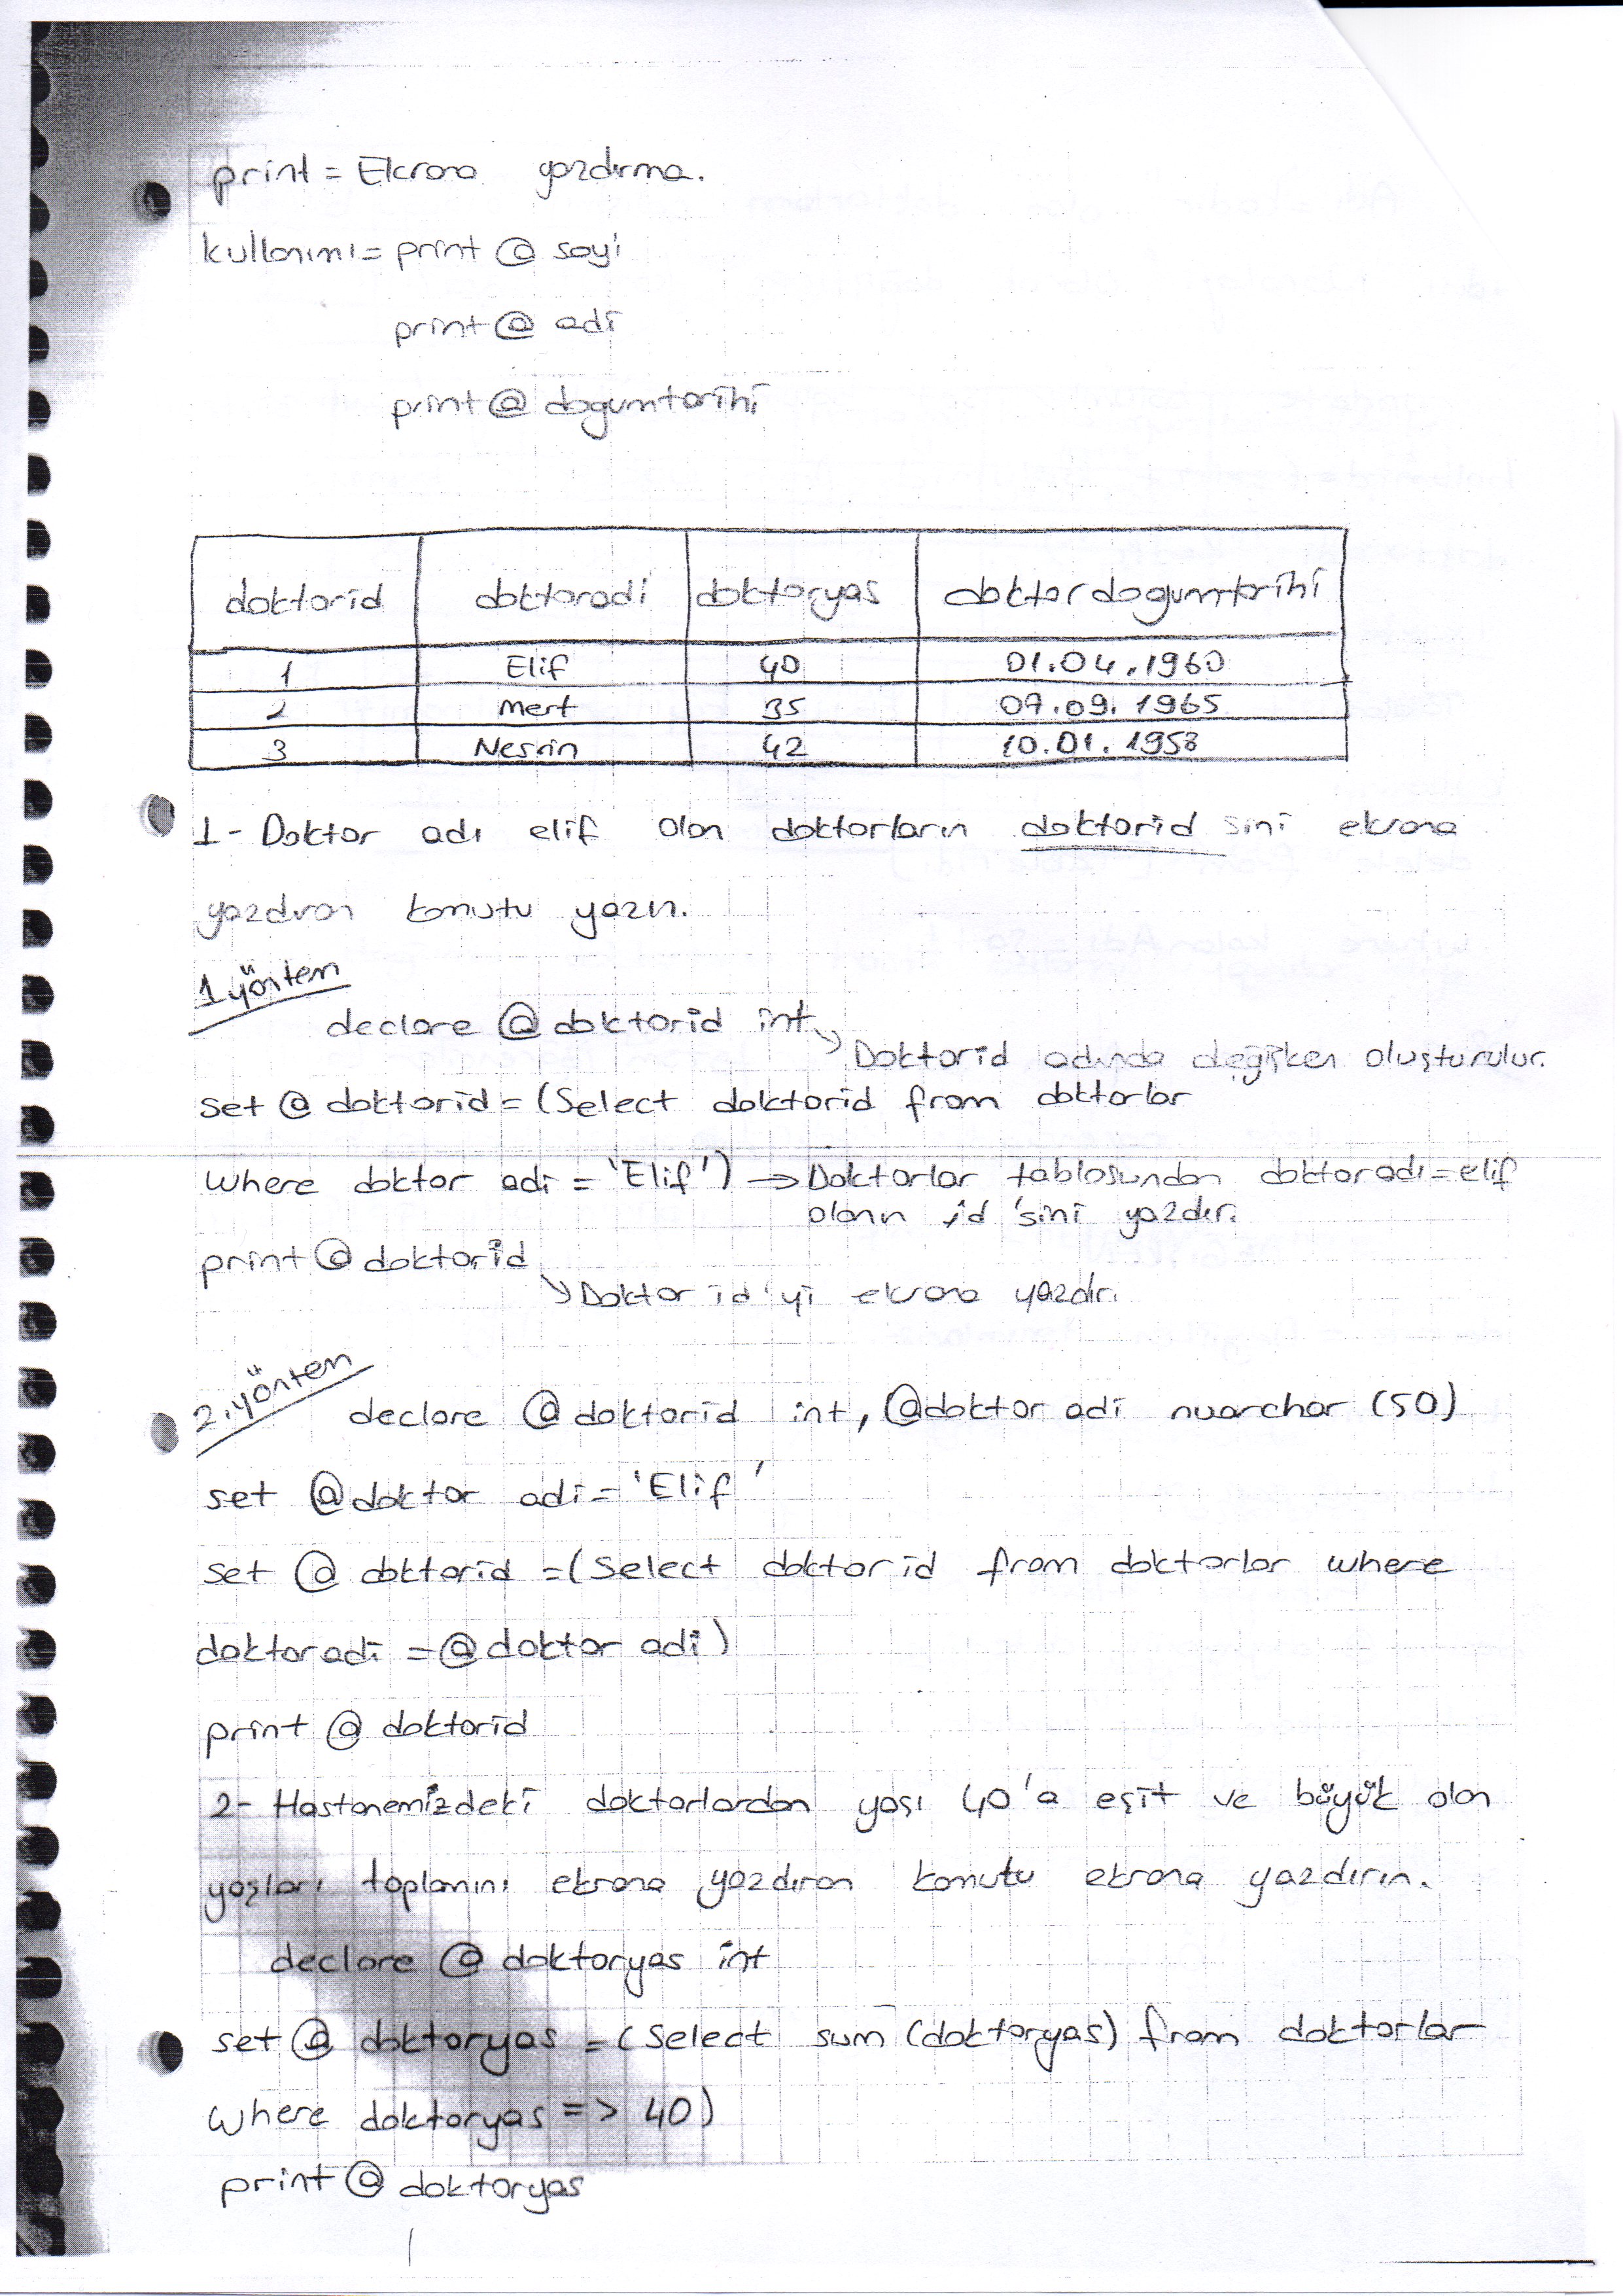 print = Ekrana yazdırma.
kullanımı = print @ sayi
print @ adi
print @ dogumtarihi
doktorid doktoradi doktoryas doktordogumtarihi
1 Elif 40 01.04.1960
2 Mert 35 07.09.1965
3 Nesrin 42 10.01.1958
1- Doktor adı elif olan doktorların doktorid sini ekrana
yazdıran komutu yazın.
1 yöntem
declare @ doktorid int
Doktorid adında değişken oluşturulur.
set @ doktorid = (Select doktorid from doktorlar
where doktor adi = 'Elif') → Doktorlar tablosundan doktoradı = elif
olanın id 'sini yazdır.
print @ doktorid
Doktor id'yi ekrana yazdır.
2. yöntem
declare @ doktorid int, @doktor adi nvarchar (50)
set @doktor adi = 'Elif'
set @ doktorid = (Select doktor id from doktorlar where
doktoradi = @ doktor adi)
print @ doktorid
2- Hastanemizdeki doktorlardan yaşı 40'a eşit ve büyük olan
yaşları toplamını ekrana yazdıran komutu ekrana yazdırın.
declare @ doktoryas int
set @ doktoryas = (Select sum (doktoryas) from doktorlar
where doktoryas => 40)
print @ doktoryas